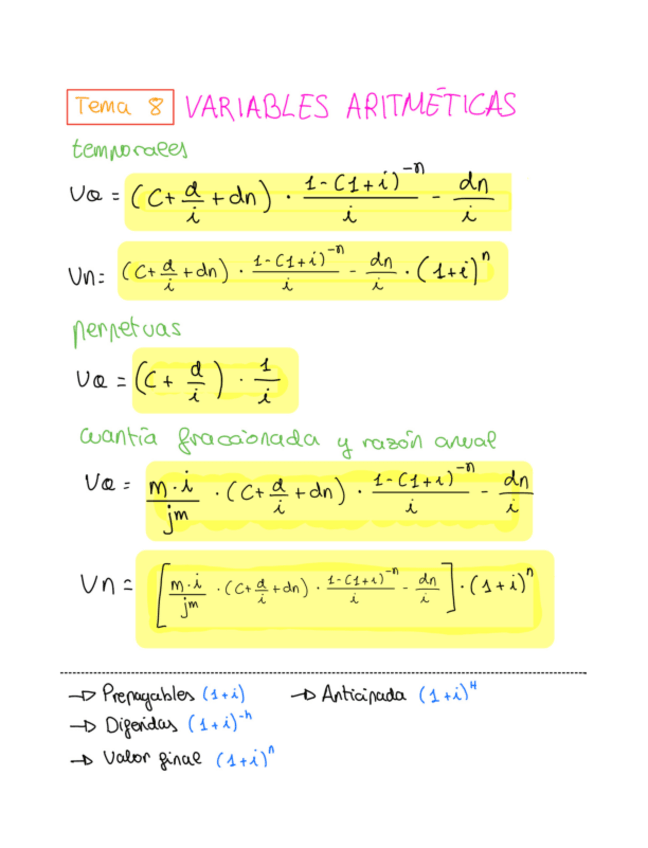 Tema 8 VARIABLES ARITMÉTICAS
temporales
Va = (C + d/i + dn) · (1-(1+i)^-n)/i - dn/i
Vn = (C + d/i + dn) · (1-(1+i)^-n)/i - dn/i · (1+i)^n
perpetuas
Va = (C + d/i) · 1/i
cuantía fraccionada y razón anual
Va = m·i/jm · (C + d/i + dn) · (1-(1+i)^-n)/i - dn/i
Vn = [m·i/jm · (C + d/i + dn) · (1-(1+i)^-n)/i - dn/i] · (1+i)^n
→ Prepagables (1+i) → Anticipada (1+i)^H
→ Diferidas (1+i)^-h
→ Valor final (1+i)^n